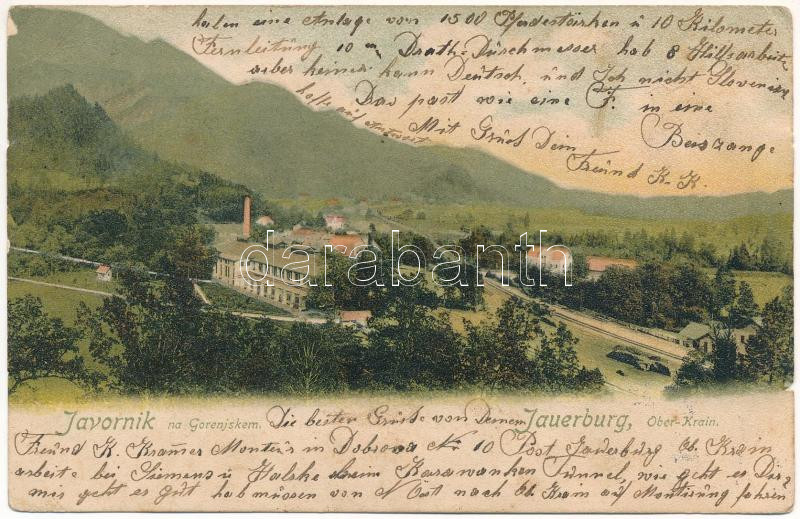 haben eine Anlage von 1500 Pferdestärken u 10 Kilometer
Fernleitung 10 m/m Drath-Durchmesser hab 8 Hilfsarbeiter
aber keiner kann Deutsch, und Ich nicht Slovenien
Das past wie eine F. in eine
Beiszange
hoffe auf Antwort
Mit Grus Dein
Freund K. K.
darabanth
Javornik na Gorenjskem.
Jauerburg, Ober-Krain.
Die besten Grüse von Deinem
Freund K. Kramer Monteur in Dobrova No 10 Post Jauerburg Ob. Krain
arbeite bei Siemens u Halske beim Karawanken Tunnel, wie geht es Dir
mir geht es gut hab müssen von N Öst nach Ob Krain auf Montirung fahren